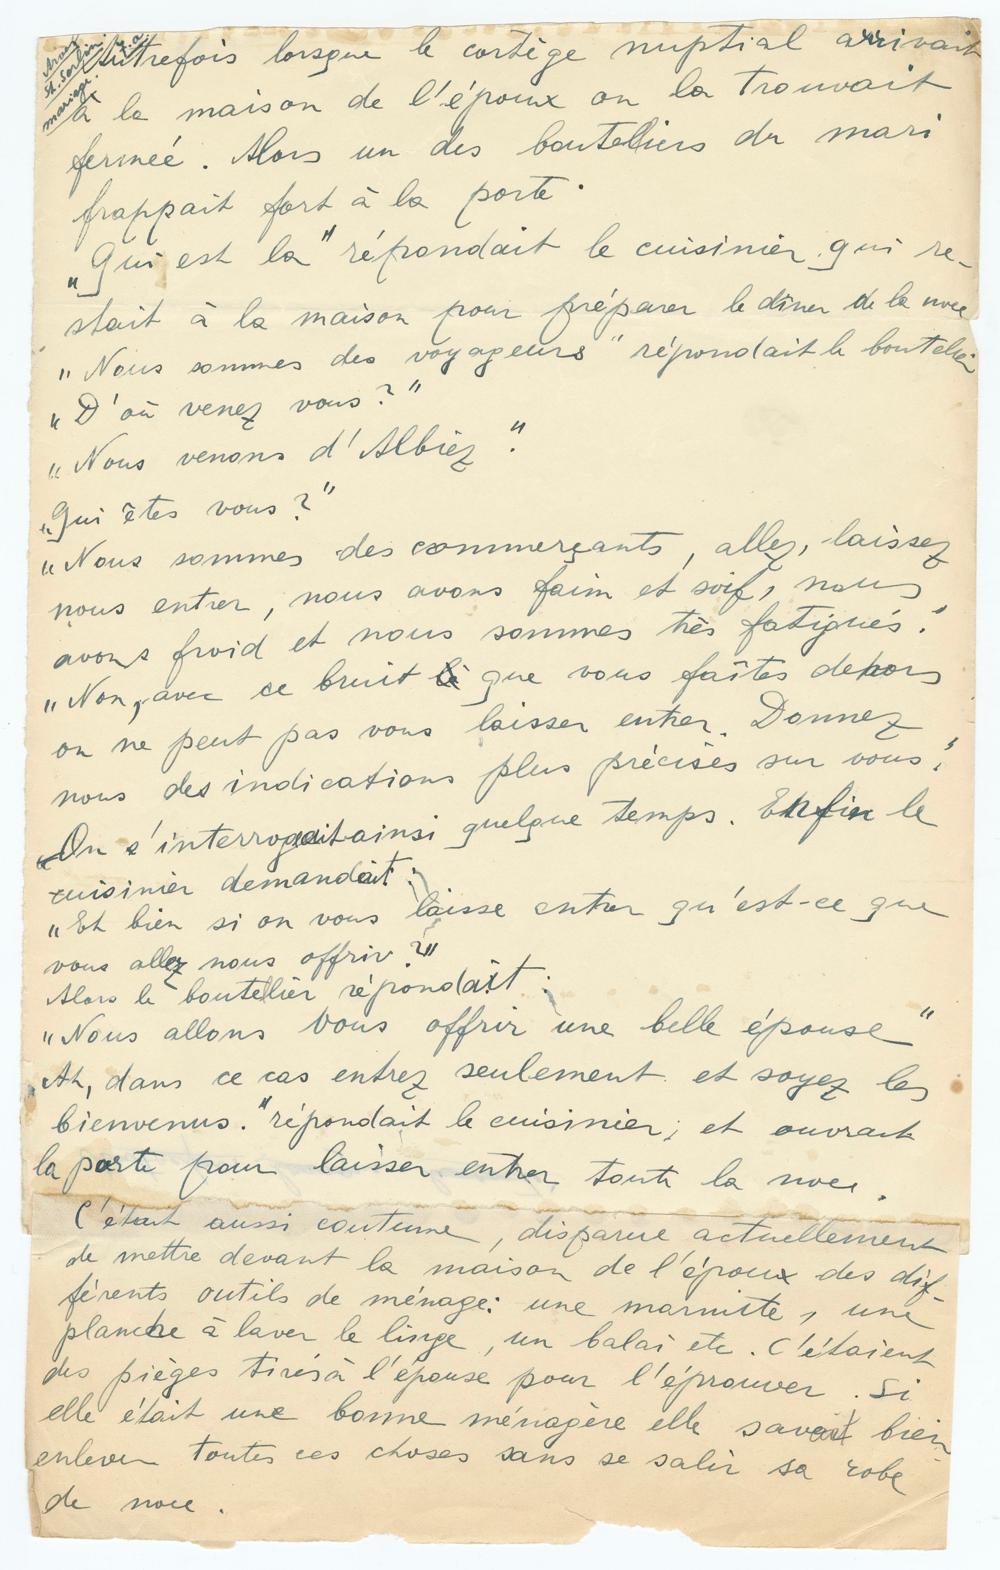 Arves
St. Sorlin
mariage
Autrefois lorsque le cortège nuptial arrivait
à la maison de l'époux on la trouvait
fermée. Alors un des bouteliers du mari
frappait fort à la porte.
"Qui est la" répondait le cuisinier qui re-
stait à la maison pour préparer le dîner de la noce
"Nous sommes des voyageurs" répondait le boutelier
"D'où venez vous?"
"Nous venons d'Albiez".
"Qui êtes vous?"
"Nous sommes des commerçants, allez, laissez
nous entrer, nous avons faim et soif, nous
avons froid et nous sommes très fatigués."
"Non, avec ce bruit que vous faîtes dehors
on ne peut pas vous laisser entrer. Donnez
nous des indications plus précises sur vous".
On s'interrogeait ainsi quelque temps. Enfin le
cuisinier demandait:
"Et bien si on vous laisse entrer qu'est-ce que
vous allez nous offrir?"
Alors le boutelier répondait:
"Nous allons vous offrir une belle épouse"
Ah, dans ce cas entrez seulement et soyez les
bienvenus." répondait le cuisinier, et ouvrait
la porte pour laisser entrer toute la noce.
C'était aussi coutume, disparue actuellement
de mettre devant la maison de l'époux des dif-
férents outils de ménage: une marmite, une
planche à laver le linge, un balai etc. C'étaient
des pièges tirés à l'épouse pour l'éprouver. Si
elle était une bonne ménagère elle savait bien
enlever toutes ces choses sans se salir sa robe
de noce.